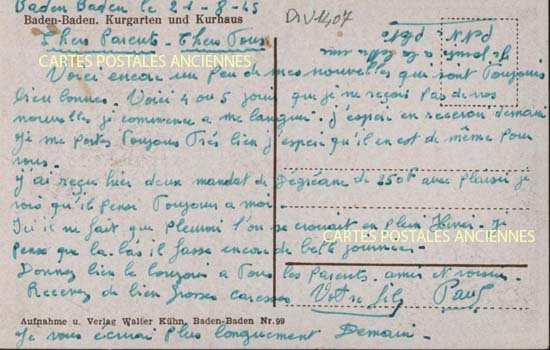 Baden Baden le 21-8-45
Baden-Baden. Kurgarten und Kurhaus
DIV1407
Chers Parents - Chers Tous
CARTES POSTALES ANCIENNES
Voici encore un peu de mes nouvelles qui sont Toujours
bien bonnes. Voici 4 ou 5 jours que je ne reçois pas de vos
nouvelles je commence a me languir. J'espère en recevoir demain
Je me portes Toujours Très bien j'espère qu'il en est de même pour
vous.
J'ai reçu hier deux mandat de Dézréane de 250f avec plaisir je
vois qu'il pense Toujours a moi
Ici il ne fait que pleuvoir l'on se croirait en plein Hiver. Je
CARTES POSTALES ANCIENNES
pense que la-bas il fasse encore de belle journées.
Donnez bien le bonjour a Tous les parents. amis et voisins.
Recevez de bien grosses caresses Votre fils Paul
Aufnahme u. Verlag Walter Kühn, Baden-Baden Nr.99
Je vous écrirai plus longuement Demain.